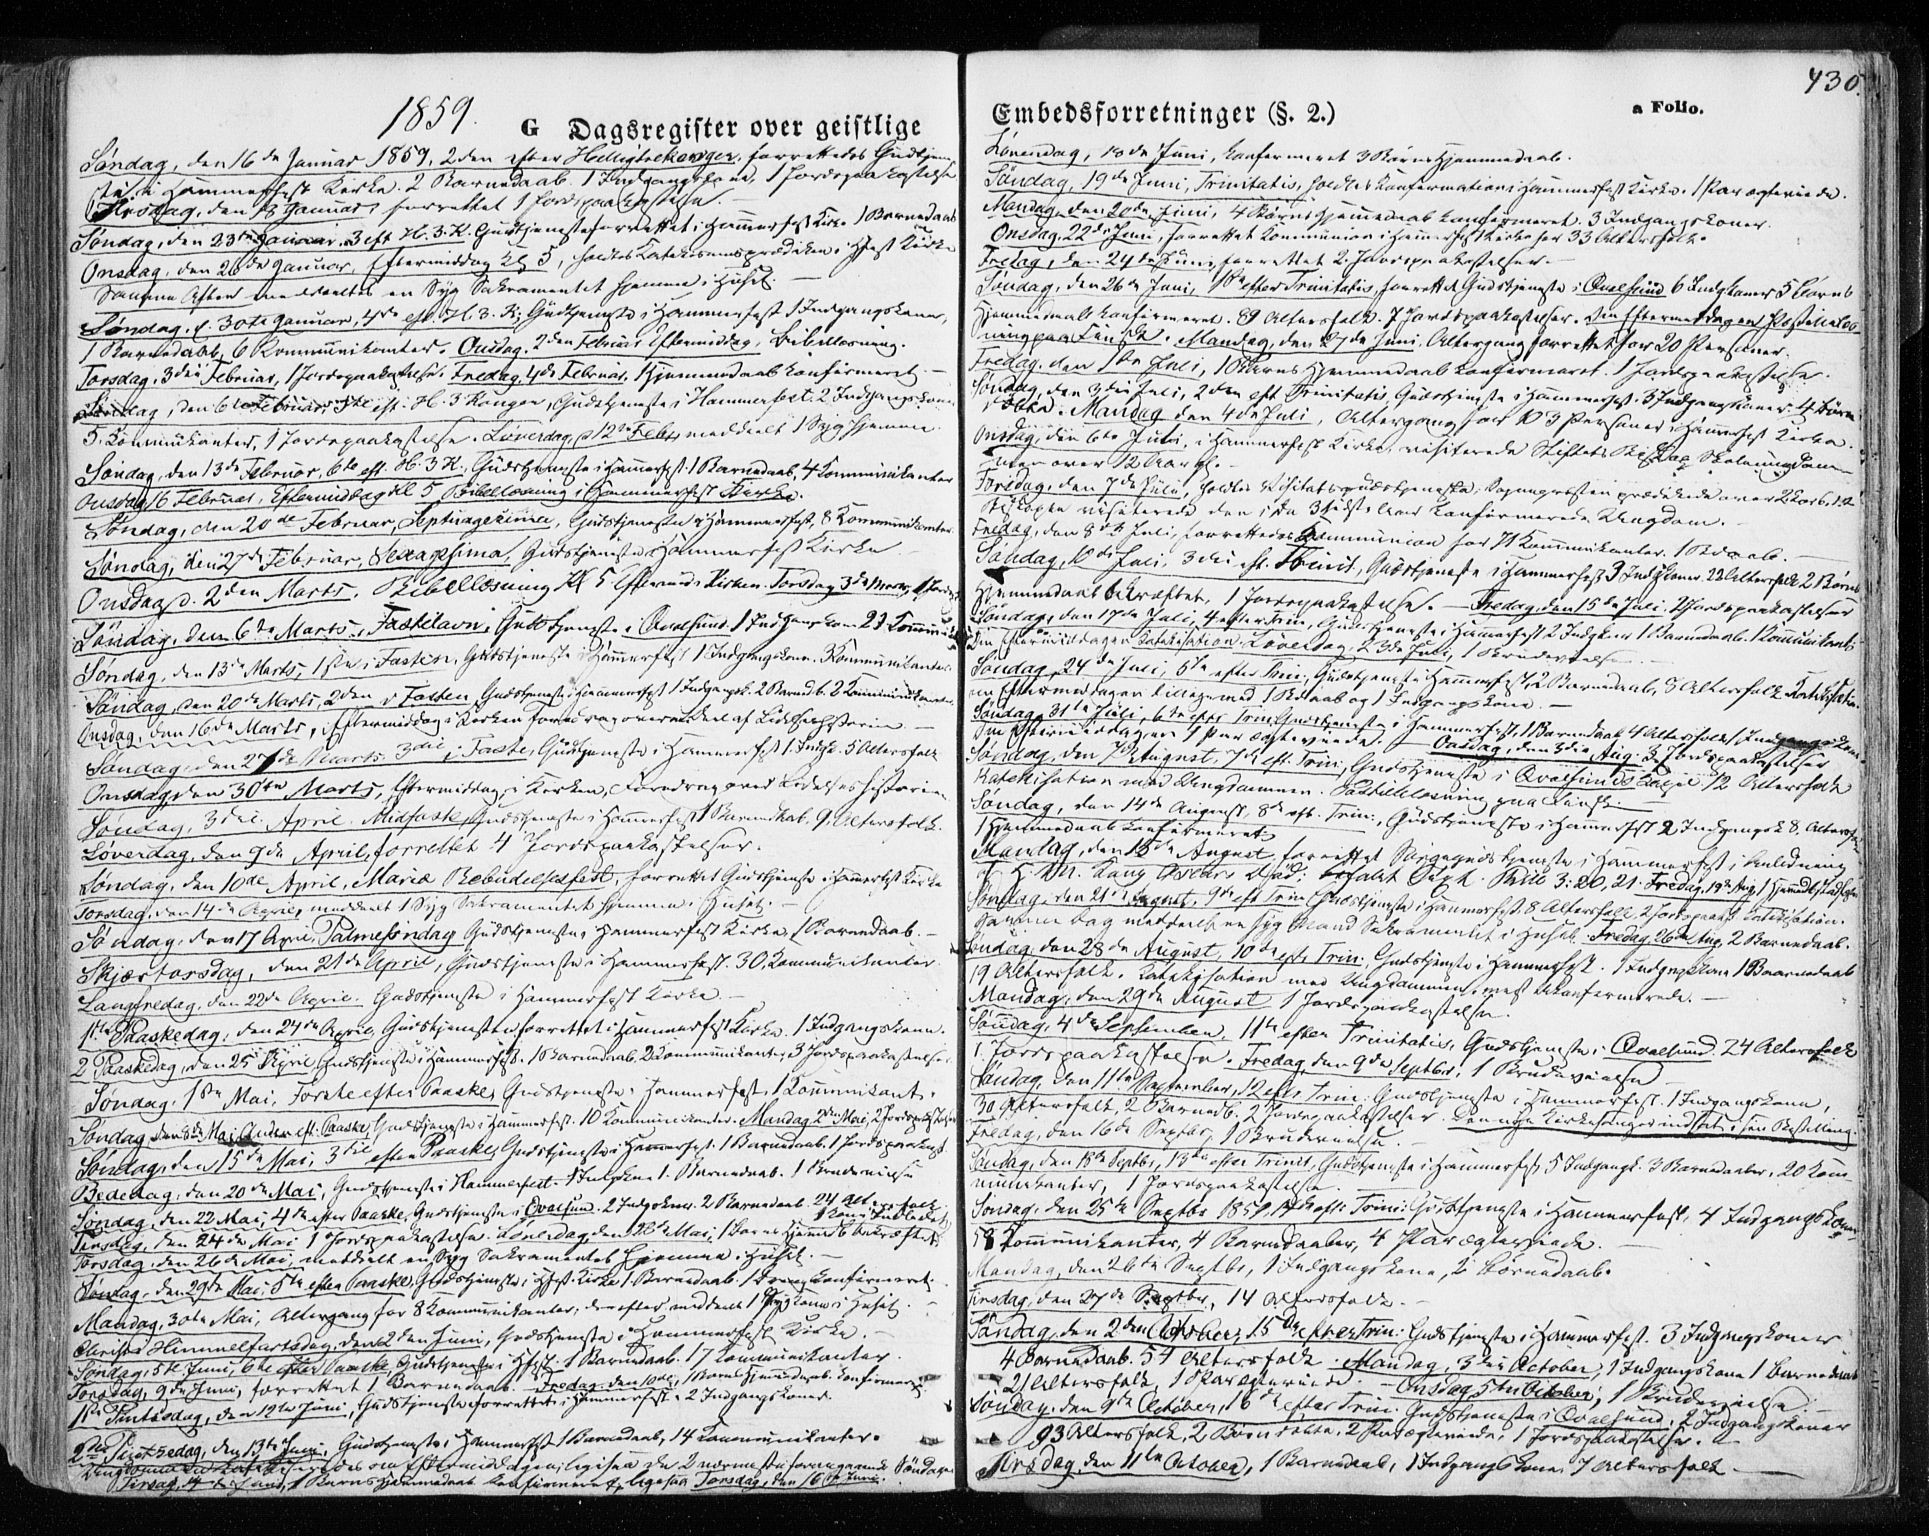 1859.
G Dagsregister over geistlige
Søndag, den 16de Januar 1859, 2den efter Helligtrekonger, forrettedes Gudstjeneste
i Hammerfest Kirke. 2 Barnedaab. 1 Indgangskone, 1 Jordpaakastelse
Tirsdag, den Januar, forrettet 1 Jordpaakastelse.
Søndag, den 23de Januar, 3 eft. H. 3. K. Gudstjeneste forrettet i Hammerfest Kirke 1 Barnedaab
Onsdag, den 26de Januar, Eftermiddag Kl. 5, holdtes Katekismusprædiken i Hfest Kirke
Samme Aften meddeeltes en Syg Sakramentet hjemme i Huset.
Søndag, d. 30te Januar, 4de eft. H. 3. K. Gudstjeneste i Hammerfest 1 Indgangskone,
1 Barnedaab, 6 Kommunikanter. Onsdag, 2den Februar Eftermiddag, Bibellæsning.
Torsdag, 3die Februar, 1 Jordpaakastelse. Fredag, 4de Februar, 1 Hjemmedaab konfirmeret.
Søndag, den 6te Februar, 5te eft. H. 3 Konger, Gudstjeneste i Hammerfest: 2 Indgangskoner
5 Kommunikanter, 1 Jordpaakastelse. Løverdag, d. 12te Febr. meddeelt 1 Syg hjemme.
Søndag, den 13de Februar, 6te eft. H. 3 K., Gudstjeneste i Hammerfest. 1 Barnedaab, 4 Kommunikanter
Onsdag 16 Februar, Eftermiddag Kl 5 Bibellæsning i Hammerfest Kirke.
Søndag, den 20de Februar, Septuagesima, Gudstjeneste i Hammerfest, 8 Kommunikanter.
Søndag, den 27de Februar, Sexagesima, Gudstjeneste i Hammerfest Kirke
Onsdag d. 2den Marts, Bibellæsning Kl 5 Efterm. i Kirken. Torsdag 3de Marts, 1
Søndag, den 6te Marts, Fastelavn, Gudstjeneste i Qvalsund. 1 Indgangskone 23 Kommunik.
Søndag, den 13de Marts, 1ste i Fasten, Gudstjeneste i Hammerfest 1 Indgangskone. Kommunikanter
Søndag, den 20de Marts, 2den i Fasten, Gudstjeneste i Hammerfest 1 Indgangsk. 2 Barnedb. 2 Kommunikanter
Onsdag, den 16de Marts, Eftermiddag i Kirken Foredrag over Lidelseshistorien
Søndag, den 27de Marts, 3die i Faste, Gudstjeneste i Hammerfest 1 Indgk. 5 Altersfolk
Onsdag den 30te Marts, Eftermiddag i Kirken, Foredrag over Lidelseshistorien
Søndag, 3die April, Midfaste, Gudstjeneste i Hammerfest 1 Barnedaab. 9 Altersfolk.
Løverdag, den 9de April, forrettet 4 Jordpaakastelser.
Søndag, den 10de April, Mariæ Bebudelsesfest, forrettet Gudstjeneste i Hammerfest Kirke
Torsdag, den 14de April, meddeelt 1 Syg Sakramentet hjemme i Huset.
Søndag, den 17 April, Palmesøndag Gudstjeneste i Hammerfest Kirke, 1 Barnedaab.
Skjærtorsdag, den 21de April, Gudstjeneste i Hammerfest. 30 Kommunikanter
Langfredag, den 22de April. Gudstjeneste i Hammerfest Kirke.
1ste Paaskedag, den 24de April, Gudstjenesten forrettet i Hammerfest Kirke. 1 Indgangskone.
2 Paaskedag, den 25 April, Gudstjeneste i Hammerfest. 1 Barnedaab, 2 Kommunikanter, 3 Jordpaakastelser.
Søndag, 1ste Mai, Første efter Paaske, Gudstjeneste i Hammerfest, 1 Kommunikant.
Søndag den 8de Mai, Anden eft. Paaske, Gudstjeneste i Hammerfest. 10 Kommunikanter. Mandag 2den Mai, 2 Jordpaakastelser
Søndag, den 15de Mai, 3die efter Paaske, Gudstjeneste i Hammerfest. 1 Barnedaab. 1 Jordpaakast.
Bededag, den 20de Mai, Gudstjeneste i Hammerfest. 1 Indgkone 1 Barnedaab. 1 Brudevielse
Søndag, den 22 Mai, 4de efter Paaske, Gudstjeneste i Qvalsund. 2 Indgkoner. 2 Barnedaab. 24 Altersfolk
Tirsdag, den 24de Mai 1 Jordpaakastelse. Løverdag, den 28de Mai, 1 Barns Hjemmedaab bekræftet.
Torsdag, den 26de Mai, meddeelt en Syg Sakramentet hjemme i Huset.
Søndag, den 29de Mai, 5te efter Paaske, Gudstjeneste i Hfest Kirke 1 Barnedaab. 1 konfirmeret.
Mandag, 30te Mai, Altergang for 8 Kommunikanter, derefter meddeelt 1 Syg hjemme i Huset.
Christi Himmelfartsdag, den 2den Juni, Gudstjeneste i Hammerfest Kirke.
Søndag, 5te Juni, 6te efter Paaske, Gudstjeneste i Hfest. 1 Barnedaab. 17 Kommunikanter.
Torsdag, 9de Juni, forrettet 1 Barnedaab. Fredag, den 10de, 1 Barns Hjemmedaab konfirmeret.
1ste Pintsedag, den 12te Juni, Gudstjeneste forrettet i Hammerfest. 2 Indgangskoner.
2den Pintsedag, den 13de Juni, Gudstjeneste i Hammerfest 1 Barnedaab, 14 Kommunikanter.
om Eftermiddagen, ligesaa de 2 næste foregaaende Søndage.
Tirsdag, 14de Juni, 1 Barns Hjemmedaab konfirmeret, ligesaa Torsdag, den 16de Juni.
Embedsforretninger (§. 2.)
a Folio.
430.
Løverdag, 18de Juni, konfirmeret 3 Børns Hjemmedaab.
Søndag, 19de Juni, Trinitatis, holdtes Konfirmation i Hammerfest Kirke. 1 Par ægteviede.
Mandag, den 20de Juni, 4 Børns Hjemmedaab konfirmeret. 3 Indgangskoner.
Onsdag, 22de Juni, forrettet Kommunion i Hammerfest Kirke for 33 Altersfolk.
Fredag, den 24de Juni, forrettet 2 Jordpaakastelser.
Søndag, den 26de Juni, 1ste efter Trinitatis, forrettet Gudstjeneste i Qvalsund 6 Indgkoner 5 Børns
Hjemmedaab konfirmeret. 89 Altersfolk. 7 Jordpaakastelser. Om Eftermiddagen Postillelæsning
paa Finsk. Mandag, den 27de Juni, Altergang forrettet for 20 Personer.
Fredag, den 1ste Juli, 1 Barns Hjemmedaab konfirmeret. 1 Jordpaakastelse.
Søndag, den 3die Juli, 2den eft. Trinitatis, Gudstjeneste i Hammerfest. 3 Indgangskoner. 4 Børn
døbte. Mandag den 4de Juli, Altergang for 103 Personer i Hammerfest Kirke.
Onsdag, den 6te Juli, i Hammerfest Kirke, visiterede Stiftets Biskop Skoleungdommen
over 12 Aar gl.
Torsdag, den 7de Juli, holdtes Visitatsgudstjeneste; Sognepresten prædikede over
Biskopen visiterede den i de 3 sidste Aar konfirmerede Ungdom.
Fredag, den 8de Juli, forrettedes Kommunion for 71 Kommunikanter. 1 Bdaab.
Søndag, 10de Juli, 3die eft. Trinit., Gudstjeneste i Hammerfest 3 Indgkoner 22 Altersfolk 2 Børns
Hjemmedaab bekræftet, 1 Jordpaakastelse. Fredag, den 15de Juli, 2 Jordpaakastelser
Søndag, den 17de Juli, 4 efter Trin., Gudstjeneste i Hammerfest 2 Indgkoner 1 Barnedaab. 1 Kommunikant
Om Eftermiddagen Katekisation. Løverdag, 23de Juli, 1 Brudevielse
Søndag, 24de Juli, 5te efter Trin., Gudstjeneste i Hammerfest, 2 Barnedaab, 8 Altersfolk Katekisation
om Eftermiddagen tilligemed 1 Bdaab og 1 Indgangskone.
Søndag, 31te Juli, 6te efter Trin. Gudstjeneste i Hammerfest, 1 Barnedaab 4 Altersfolk, 1 Indgangskone
Om Eftermiddagen 1 Par ægteviede. Onsdag, den 3die Aug. 3 Jordpaakastelser
Søndag, den 7de August, 7de eft. Trin., Gudstjeneste i Qvalsunds Capel 12 Altersfolk
Katekisation med Ungdommen. Postillelæsning paa Finsk.
Søndag, den 14de August, 8de eft. Trin., Gudstjeneste i Hammerfest 2 Indgangsk. 8 Altersfolk
1 Hjemmedaab konfirmeret.
Mandag, den 15de August, forrettet Sørgegudstjeneste i Hammerfest i Anledning
af H. M. Kong Oscars Død: befalet Text. 3: 20, 21. Fredag, 19de Aug., 1 Hjemmed.
Søndag, den 21de August, 9de eft. Trin. Gudstjeneste i Hammerfest. 8 Altersfolk, 2 Jordpaak. Katekisation.
Samme Dag meddeelt en syg Mand Sakramentet i Huset. Fredag, 26de Aug. 2 Barnedaab.
Søndag, den 28de August, 10de eft. Trin., Gudstjeneste i Hammerfest. 1 Indgngskone 1 Barnedaab
19 Altersfolk. Katekisation med Ungdommen, mest Ukonfirmerede.
Mandag, den 29de August, 1 Jordpaakastelse.
Søndag, 4de September, 11te efter Trinitatis, Gudstjeneste i Qvalsund. 24 Altersfolk
1 Jordpaakastelse. Fredag, den 9de Septbr, 1 Brudevielse
Søndag, den 11te September, 12 eft. Trin. Gudstjeneste i Hammerfest. 1 Indgangskone,
30 Altersfolk, 2 Barnedb. 2 Jordpaakastelser. Den nye Kirkesanger indsat i sin Bestilling.
Fredag, den 16de Septbr, 1 Brudevielse.
Søndag, den 18de Septbr, 13de efter Trinit., Gudstjeneste i Hammerfest, 5 Indgangk. 3 Barnedaaber, 20 Kommunikanter,
1 Jordpaakastelse.
Søndag, den 25de Septbr 1859, 14de eft. Trin. Gudstjeneste i Hammerfest, 4 Indgangskoner,
58 Kommunikanter, 4 Barnedaaber, 4 Par ægteviede.
Mandag, den 26de Septbr, 1 Indgangskone, 2 Børnedaab.
Tirsdag, den 27de Septbr, 14 Altersfolk.
Søndag, den 2den October, 15de efter Trin. Gudstjeneste i Hammerfest. 3 Indgangskoner
4 Barnedaab. 54 Altersfolk. Mandag, 3die October, 1 Indgangskone 1 Barnedaab
21 Altersfolk, 1 Par ægteviede. Onsdag 5te October, 1 Brudevielse.
Søndag, den 9de October, 16de efter Trin. Gudstjeneste i Qvalsund, 2 Indgangskoner
93 Altersfolk, 2 Børn døbte, 2 Par ægteviede, 1 Jordpaakastelse.
Tirsdag, den 11te October, 1 Barnedaab, 1 Indgangskone, 7 Altersfolk